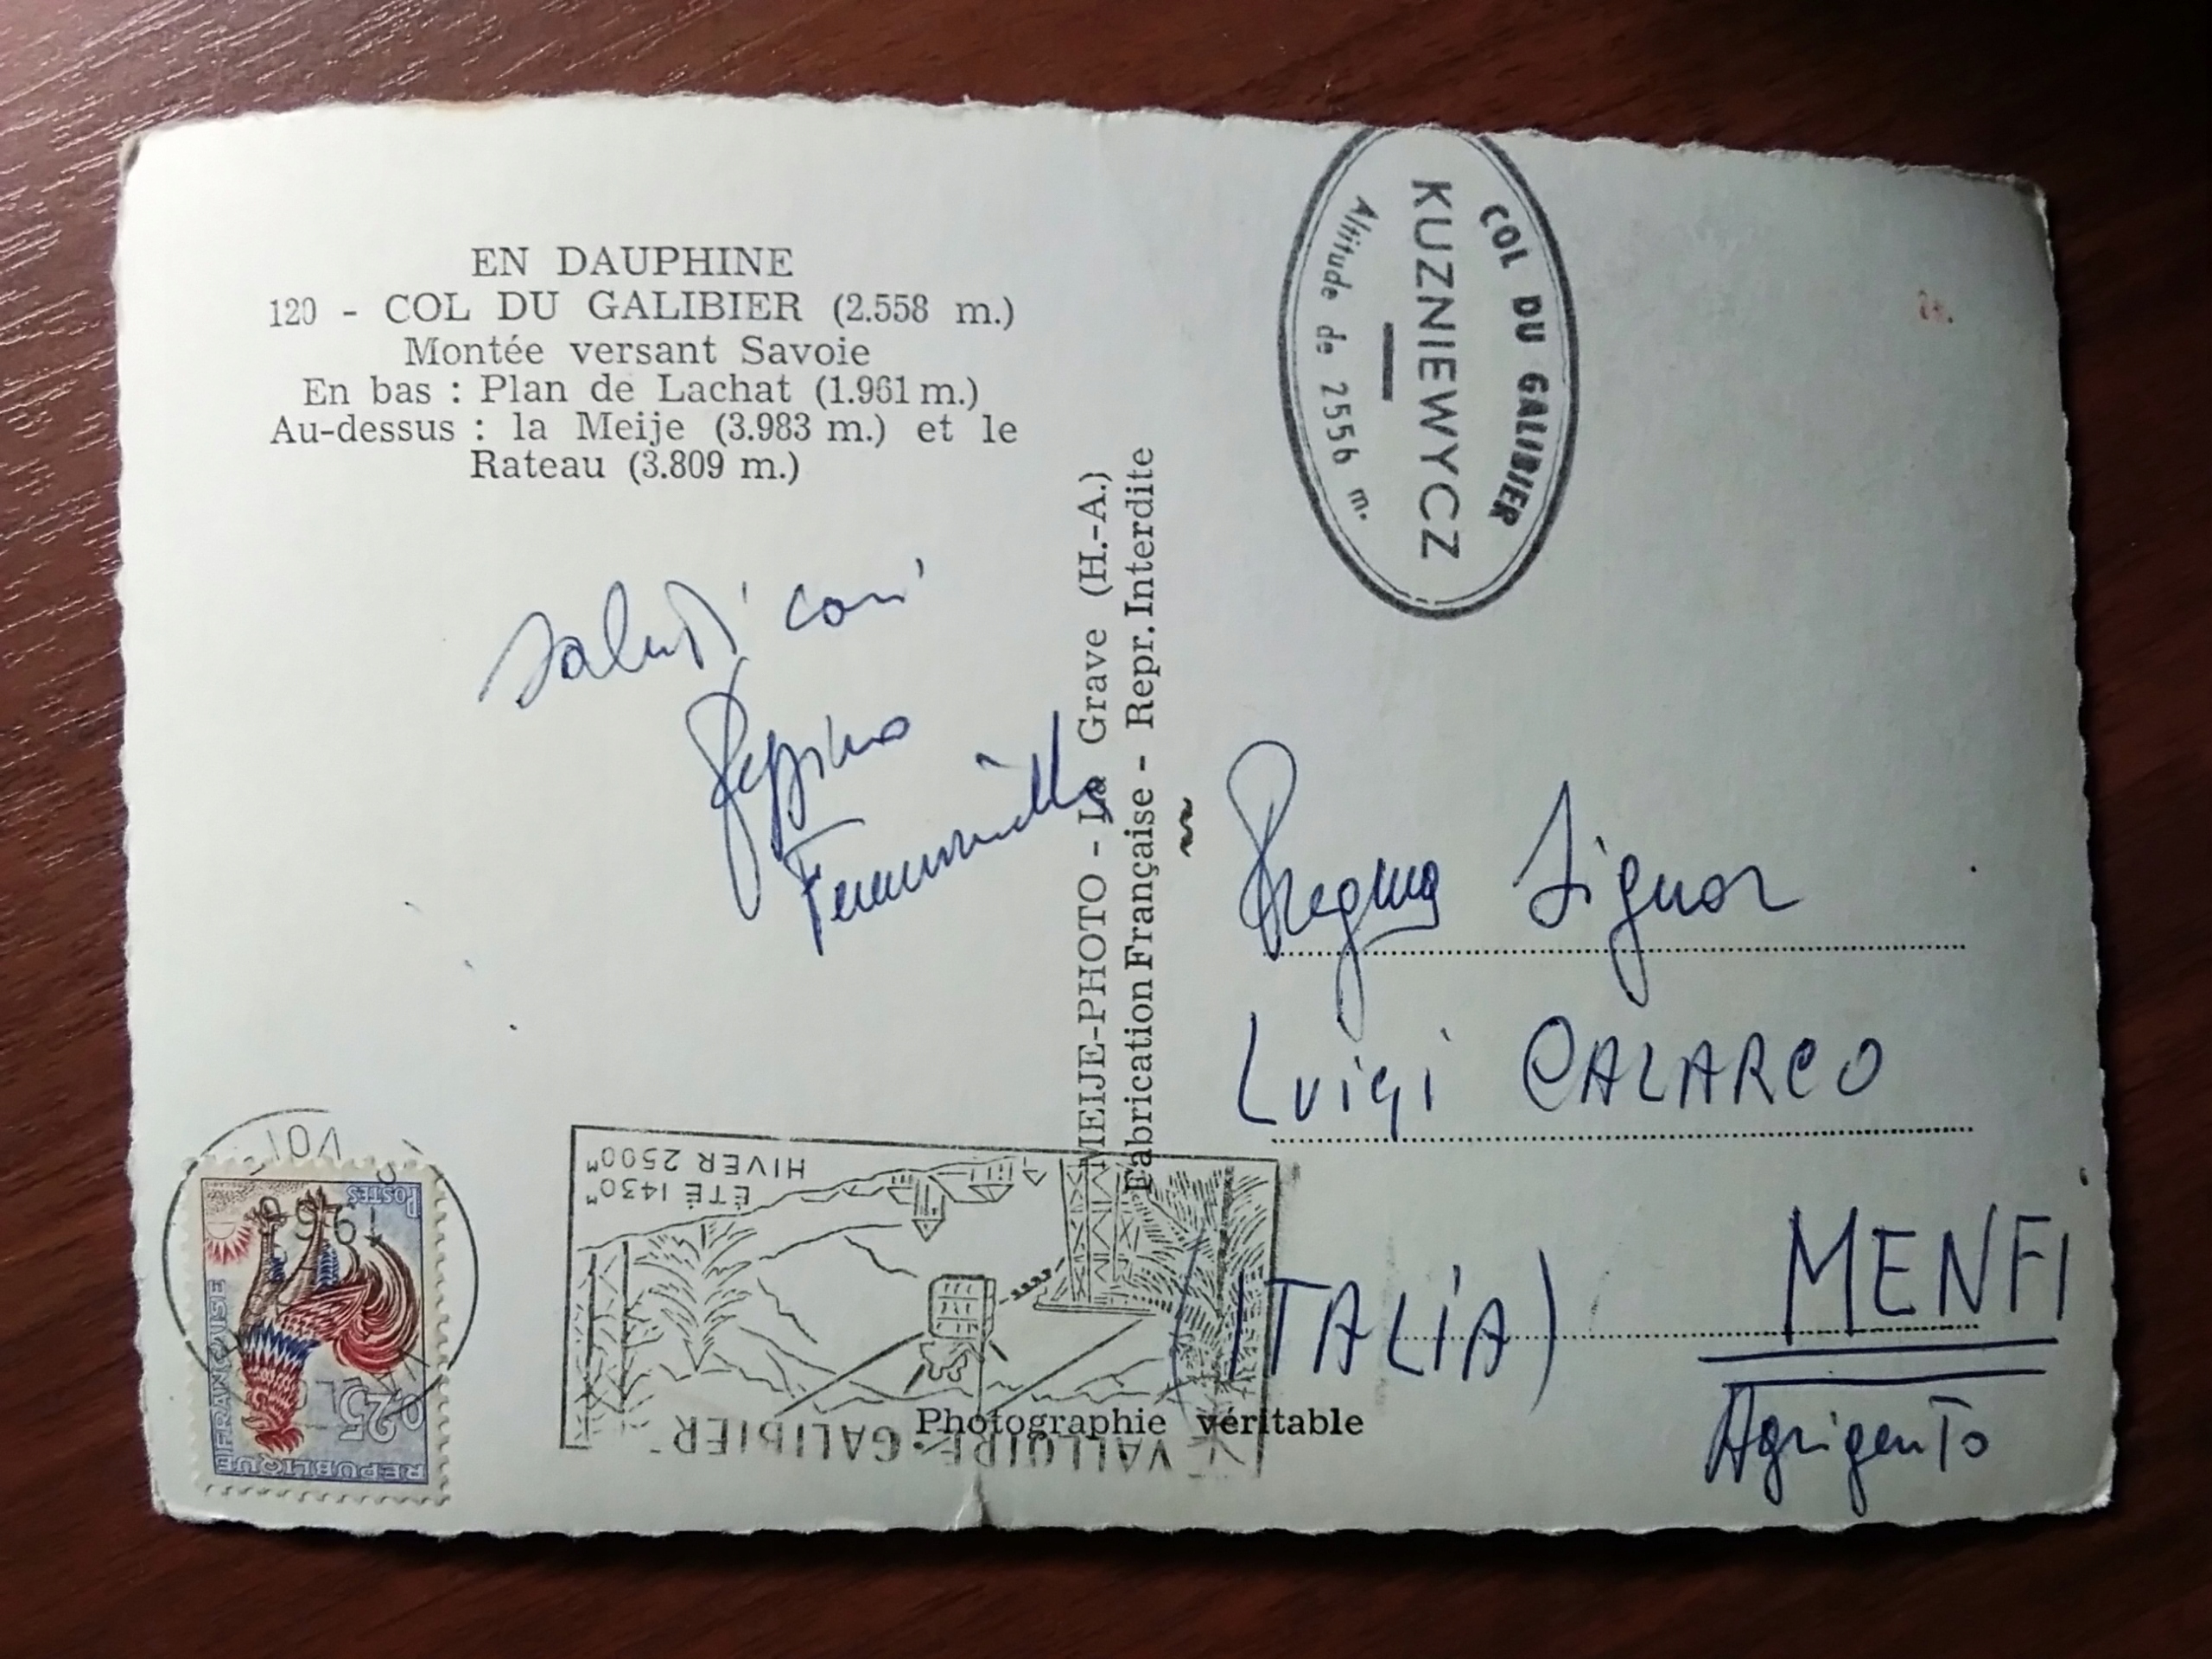 EN DAUPHINE
120 - COL DU GALIBIER (2.558 m.)
Montée versant Savoie
En bas : Plan de Lachat (1.961 m.)
Au-dessus : la Meije (3.983 m.) et le
Rateau (3.809 m.)
saluti cari
Peppino
MEIJE-PHOTO - La Grave (H.-A.)
Fabrication Française - Repr. Interdite
COL DU GALIBIER
KUZNIEWYCZ
Altitude de 2556 m.
Signor
Luigi CALARCO
MENFI
(ITALIA)
Agrigento
Photographie véritable
HIVER 2500ᴹ
ÉTÉ 1430ᴹ
VALLOIRE-GALIBIER
POSTES
0,25
REPUBLIQUE
FRANÇAISE